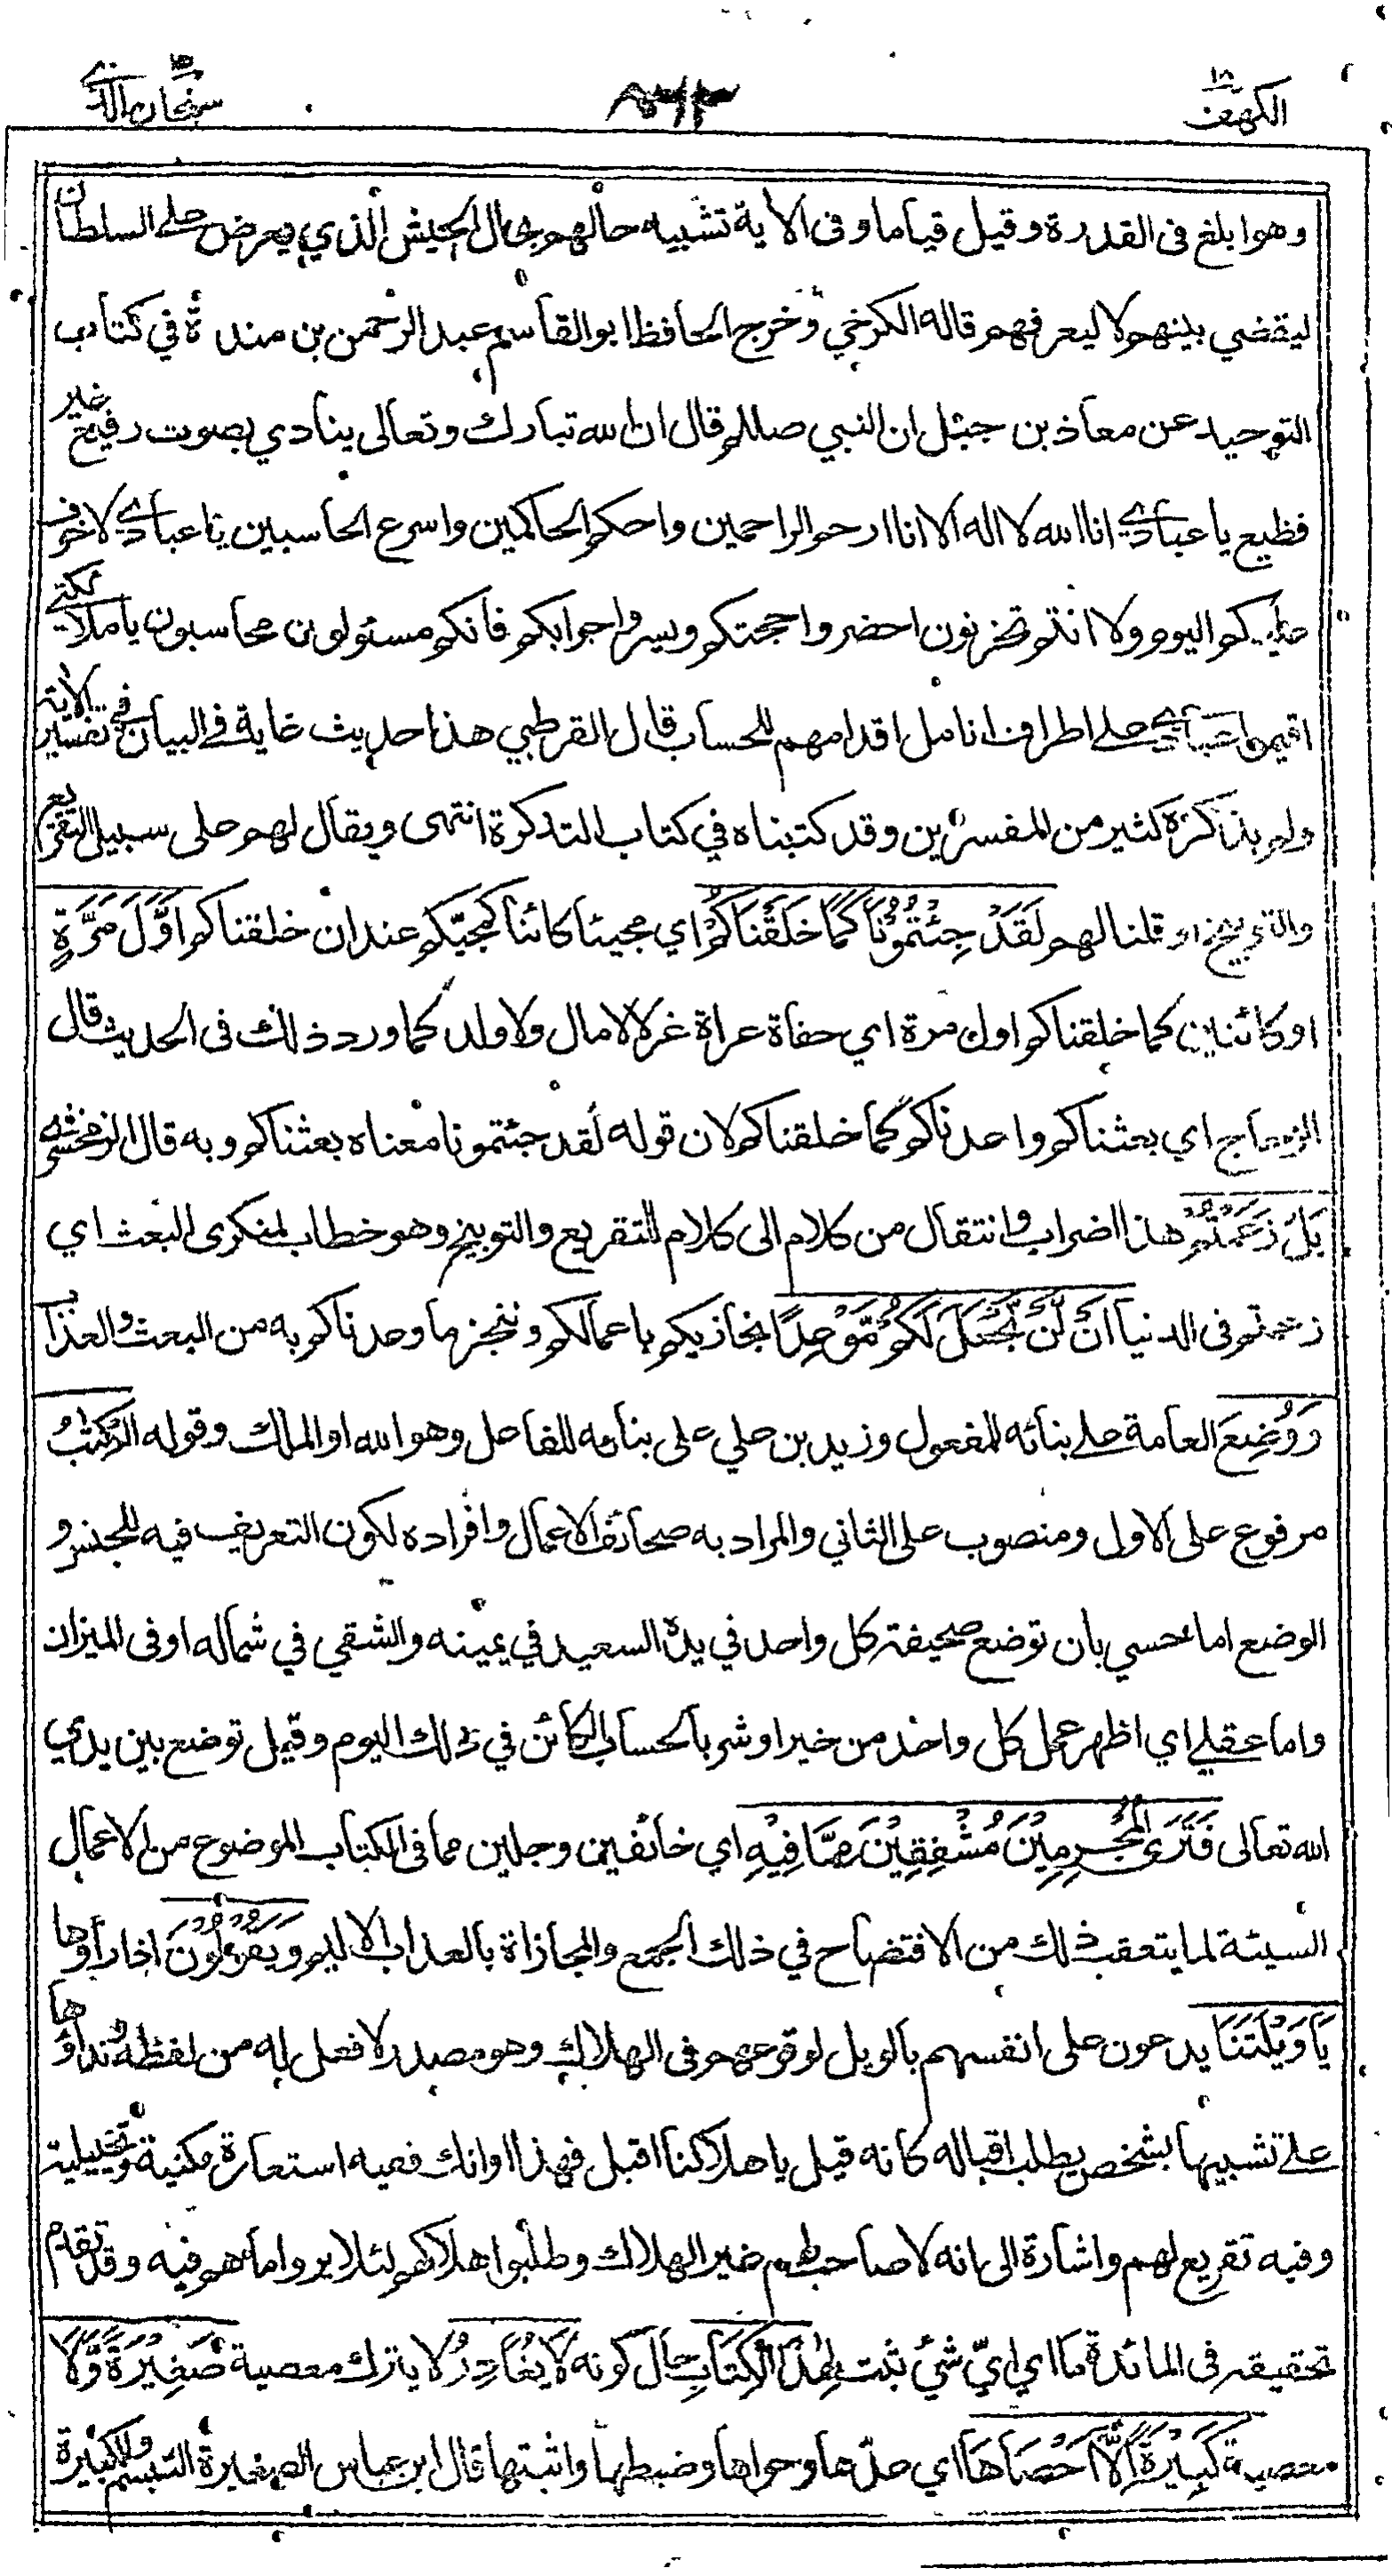 الكهف ١٨
٨٦٢
سبحان الذي ١٥
وهو ابلغ فى القدرة وقيل قياما وفى الأية تشبيه حالهم بحال الجيش الذي يعرض على السلطان
ليقضي بينهم لا ليعرفهم قاله الكرخي وخرج الحافظ ابو القاسم عبد الرحمن بن مندة في كتاب
التوحيد عن معاذ بن جبل ان النبي صللم قال ان الله تبارك وتعالى ينادي بصوت رفيع غير
فظيع يا عبادي انا الله لا اله الا انا ارحم الراحمين واحكم الحاكمين واسرع الحاسبين يا عبادي لا خوف
عليكم اليوم ولا انتم تحزنون احضروا حجتكم ويسروا جوابكم فانكم مسئولون محاسبون يا ملائكتي
اقيموا عبادي على اطراف انامل اقدامهم للحساب قال القرطبي هذا حديث غاية في البيان في تفسير الأية
ولم يذكره كثير من المفسرين وقد كتبناه في كتاب التذكرة انتهى ويقال لهم على سبيل التقريع
والتوبيخ او قلنا لهم لَقَدْ جِئْتُمُوْنَا كَمَا خَلَقْنَاكُمْ اي مجيئا كائنا كمجيّكم عند ان خلقناكم اَوَّلَ مَرَّةٍ
او كائنين كما خلقناكم اول مرة اي حفاة عراة غرلا لا مال ولا ولد كما ورد ذلك فى الحديث قال
الزجاج اي بعثناكم واعدناكم كما خلقناكم لان قوله لقد جئتمونا معناه بعثناكم وبه قال الزمخشري
بَلْ زَعَمْتُمْ هذا اضراب وانتقال من كلام الى كلام للتقريع والتوبيخ وهو خطاب لمنكرى البعث اي
زعمتم فى الدنيا اَنْ لَّنْ نَّجْعَلَ لَكُمْ مَّوْعِدًا نجازيكم باعمالكم وننجز ما وعدناكم به من البعث والعذاب
وَوُضِعَ العامة على بنائه للمفعول وزيد بن علي على بنائه للفاعل وهو الله او الملك وقوله الْكِتٰبُ
مرفوع على الاول ومنصوب على الثاني والمراد به صحائف الاعمال وافراده لكون التعريف فيه للجنس و
الوضع اما حسي بان توضع صحيفة كل واحد في يده السعيد في يمينه والشقي في شماله او فى الميزان
واما عقلي اي اظهر عمل كل واحد من خير او شر بالحساب الكائن في ذلك اليوم وقيل توضع بين يدي
الله تعالى فَتَرَى الْمُجْرِمِيْنَ مُشْفِقِيْنَ مِمَّا فِيْهِ اي خائفين وجلين مما فى الكتاب الموضوع من الاعمال
السيئة لما يتعقب ذلك من الافتضاح في ذلك الجمع والمجازاة بالعذاب الاليم وَيَقُوْلُوْنَ اذا رأوها
يَا وَيْلَتَنَا يدعون على انفسهم بالويل لوقوعهم فى الهلاك وهو مصدر لا فعل له من لفظه نداؤها
على تشبيهها بشخص يطلب اقباله كانه قيل يا هلاكنا اقبل فهذا اوانك ففيه استعارة مكنية وتخييلية
وفيه تقريع لهم واشارة الى انه لا صاحب لهم غير الهلاك وطلبوا هلاكهم لئلا يروا ما هم فيه وقد تقدم
تحقيقه فى المائدة مَا اي ايّ شئ ثبت لِهٰذَا الْكِتَابِ حال كونه لَا يُغَادِرُ لا يترك معصية صَغِيْرَةً وَّلَا
معصية كَبِيْرَةً اِلَّا اَحْصَاهَا اي عدّها وحواها وضبطها واثبتها قال ابن عباس الصغيرة التبسم والكبيرة